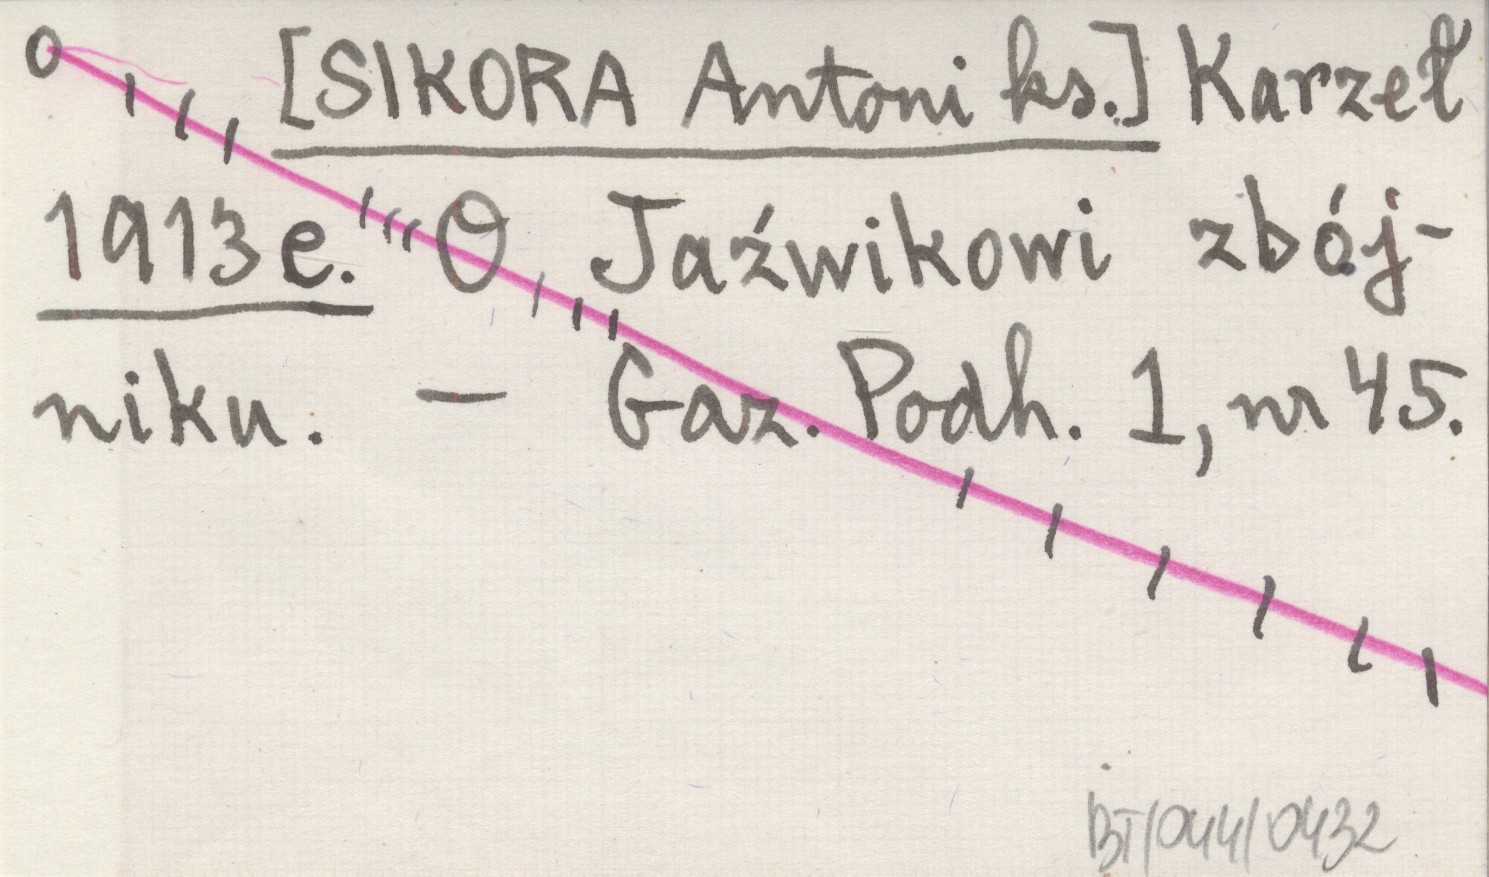 [SIKORA Antoni ks.] Karzeł
1913e. "O Jaźwikowi zbój-
niku. — Gaz. Podh. 1, nr 45.
BT/044/0432